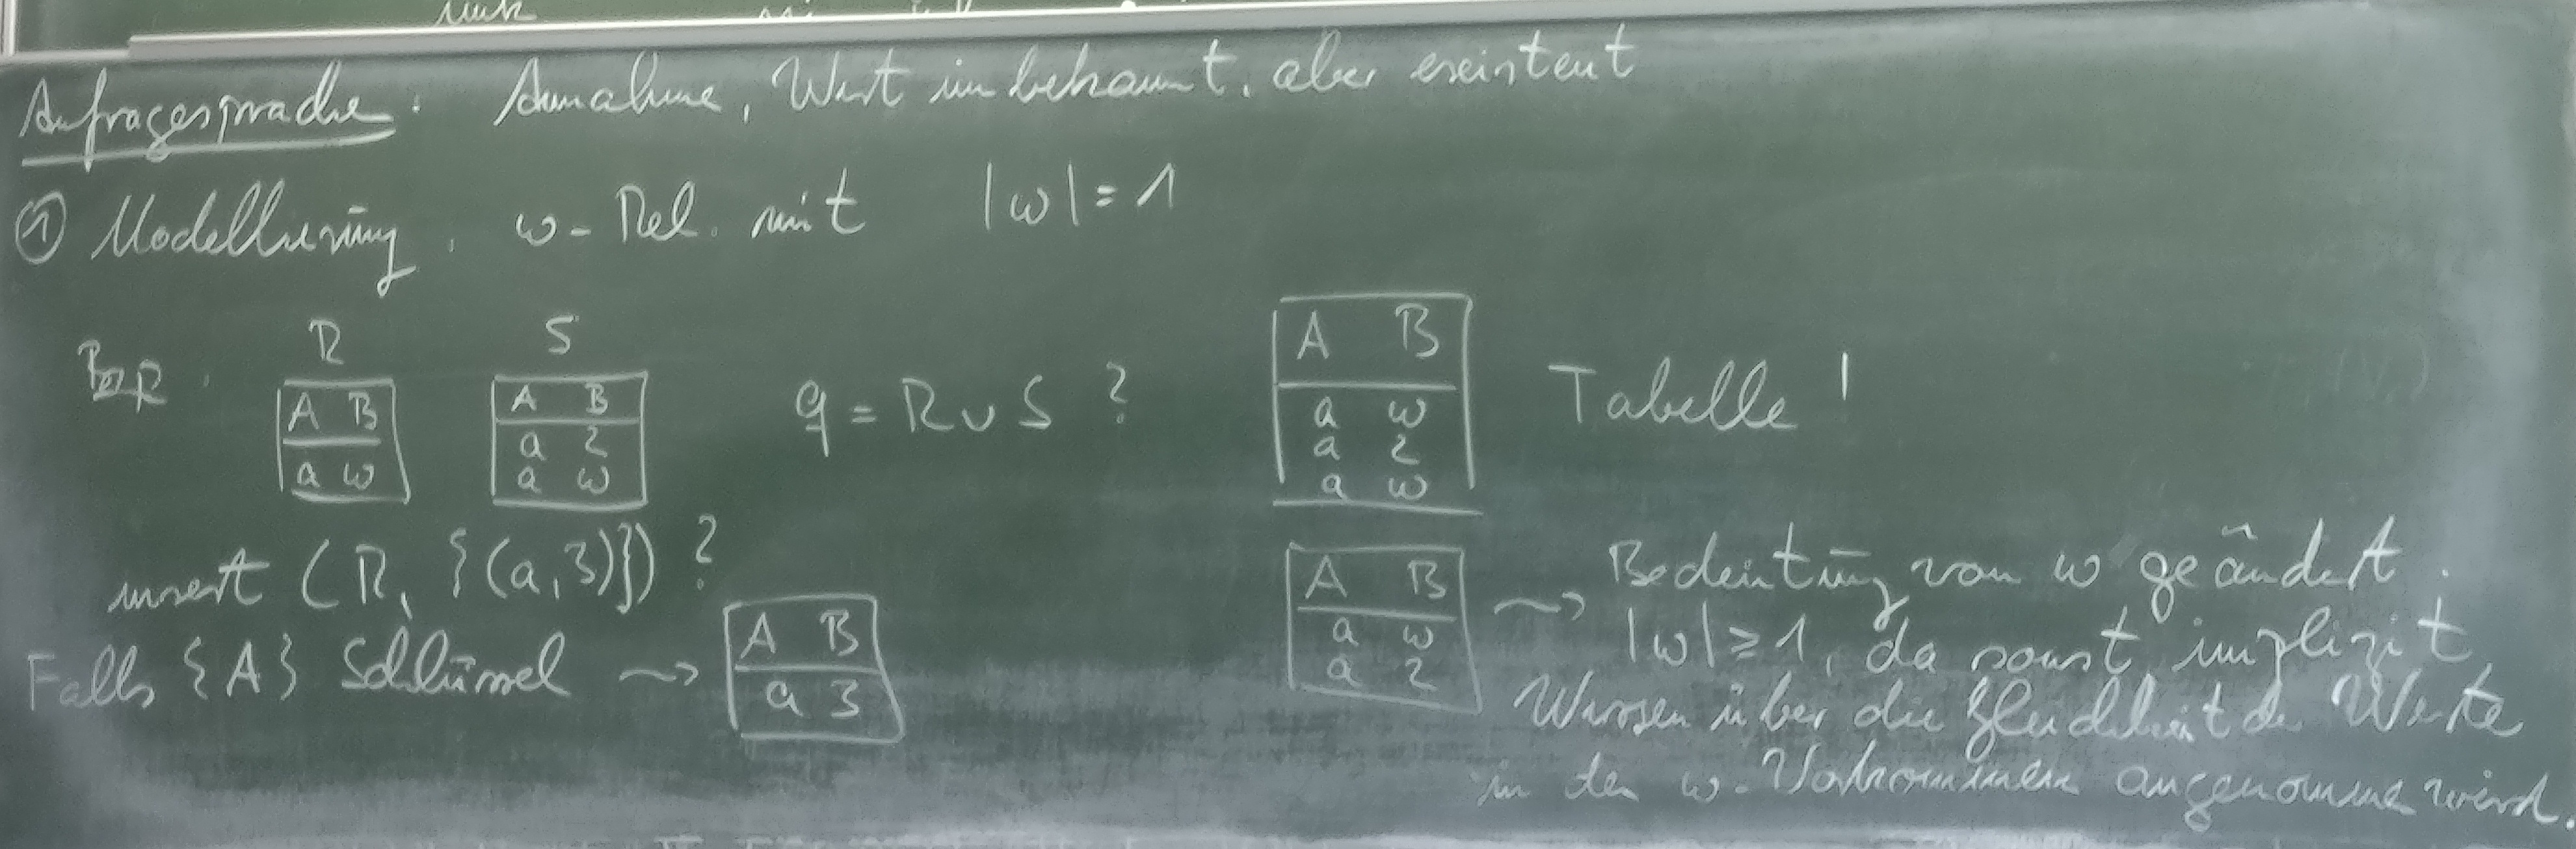 Anfragesprache: Annahme, Wert unbekannt, aber existent
① Modellierung: ω-Rel. mit |ω| = 1
Bsp.:
R
A B
a ω
S
A B
a 2
a ω
q = R ∪ S ?
A B
a ω
a 2
a ω
Tabelle!
insert (R, {(a,3)}) ?
Falls {A} Schlüssel ⇝
A B
a 3
A B
a ω
a 2
⇝ Bedeutung von ω geändert.
|ω| ≥ 1, da sonst implizit
Wissen über die Gleichheit der Werte
in den ω-Vorkommen angenommen wird.